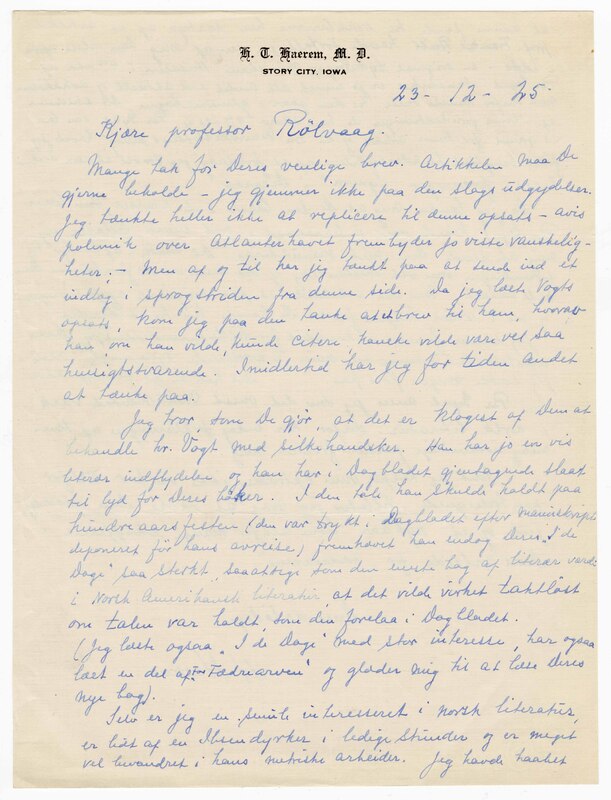 H. T. Haerem, M. D.
STORY CITY, IOWA
23 - 12 - 25
Kjære professor Rölvaag.
Mange tak for Deres venlige brev. Artikkelen maa De
gjerne beholde – jeg gjemmer ikke paa den slags udgydelser.
Jeg tænkte heller ikke at replicere til denne opsats – avis
polemik over Atlanterhavet frembyder jo visse vanskelig-
heter, – Men af og til har jeg tænkt paa at sende ind et
indlæg i sprogstriden fra denne side. Da jeg læst Vogts
opsats, kom jeg paa den tanke at et brev til ham, hvorav
han, om han vilde, kunde citere kanske vilde være vel saa
hensigtsvarende. Imidlertid har jeg for tiden andet
at tænke paa.
Jeg tror, som De gjør, at det er klogest af Dem at
behandle hr. Vogt med silkehandsker. Han har jo en vis
literær indflydelse og han har i Dagbladet gjentagende slaat
til lyd for Deres bøker. I den tale han skulde holdt paa
hundreaarsfesten (den var trykt i Dagbladet efter manuskript
deponeret før hans avreise) fremhævet han endog Deres "I de
Dage" saa sterkt, saa at si som den eneste bog af literær værdi
i Norsk Amerikansk literatur, at det vilde virket taktløst
om talen var holdt, som den forelaa i Dagbladet.
(Jeg læste ogsaa "I de Dage" med stor interesse, har ogsaa
læst en del af "Om Fædrearven" og glæder mig til at læse Deres
nye bog).
Selv er jeg en smule interesseret i norsk literatur,
er lidt af en Ibsendyrker i ledige stunder og er meget
vel bevandret i hans metriske arbeider. Jeg havde haabet